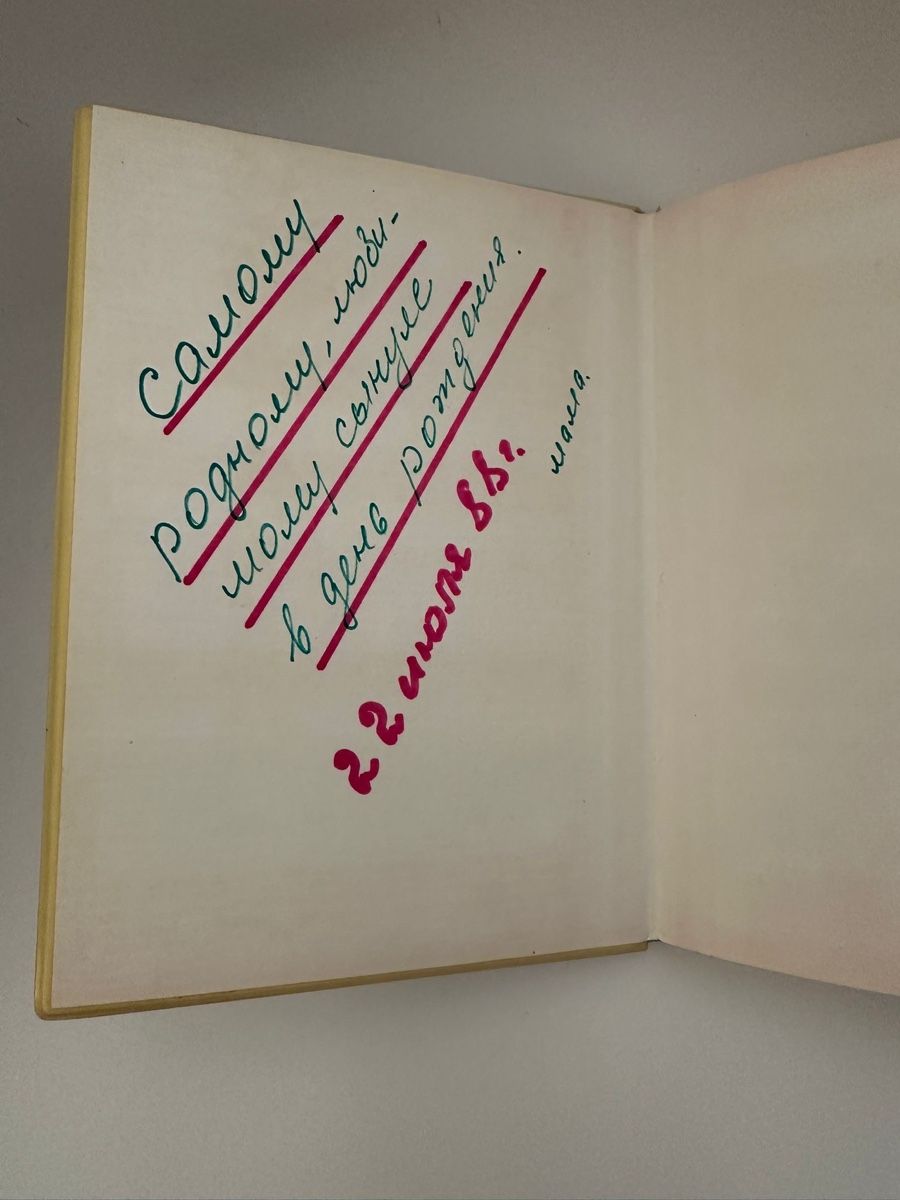 Самому
родному, люби-
мому сынуле
в день рождения.
22 июля 88г.
мама.